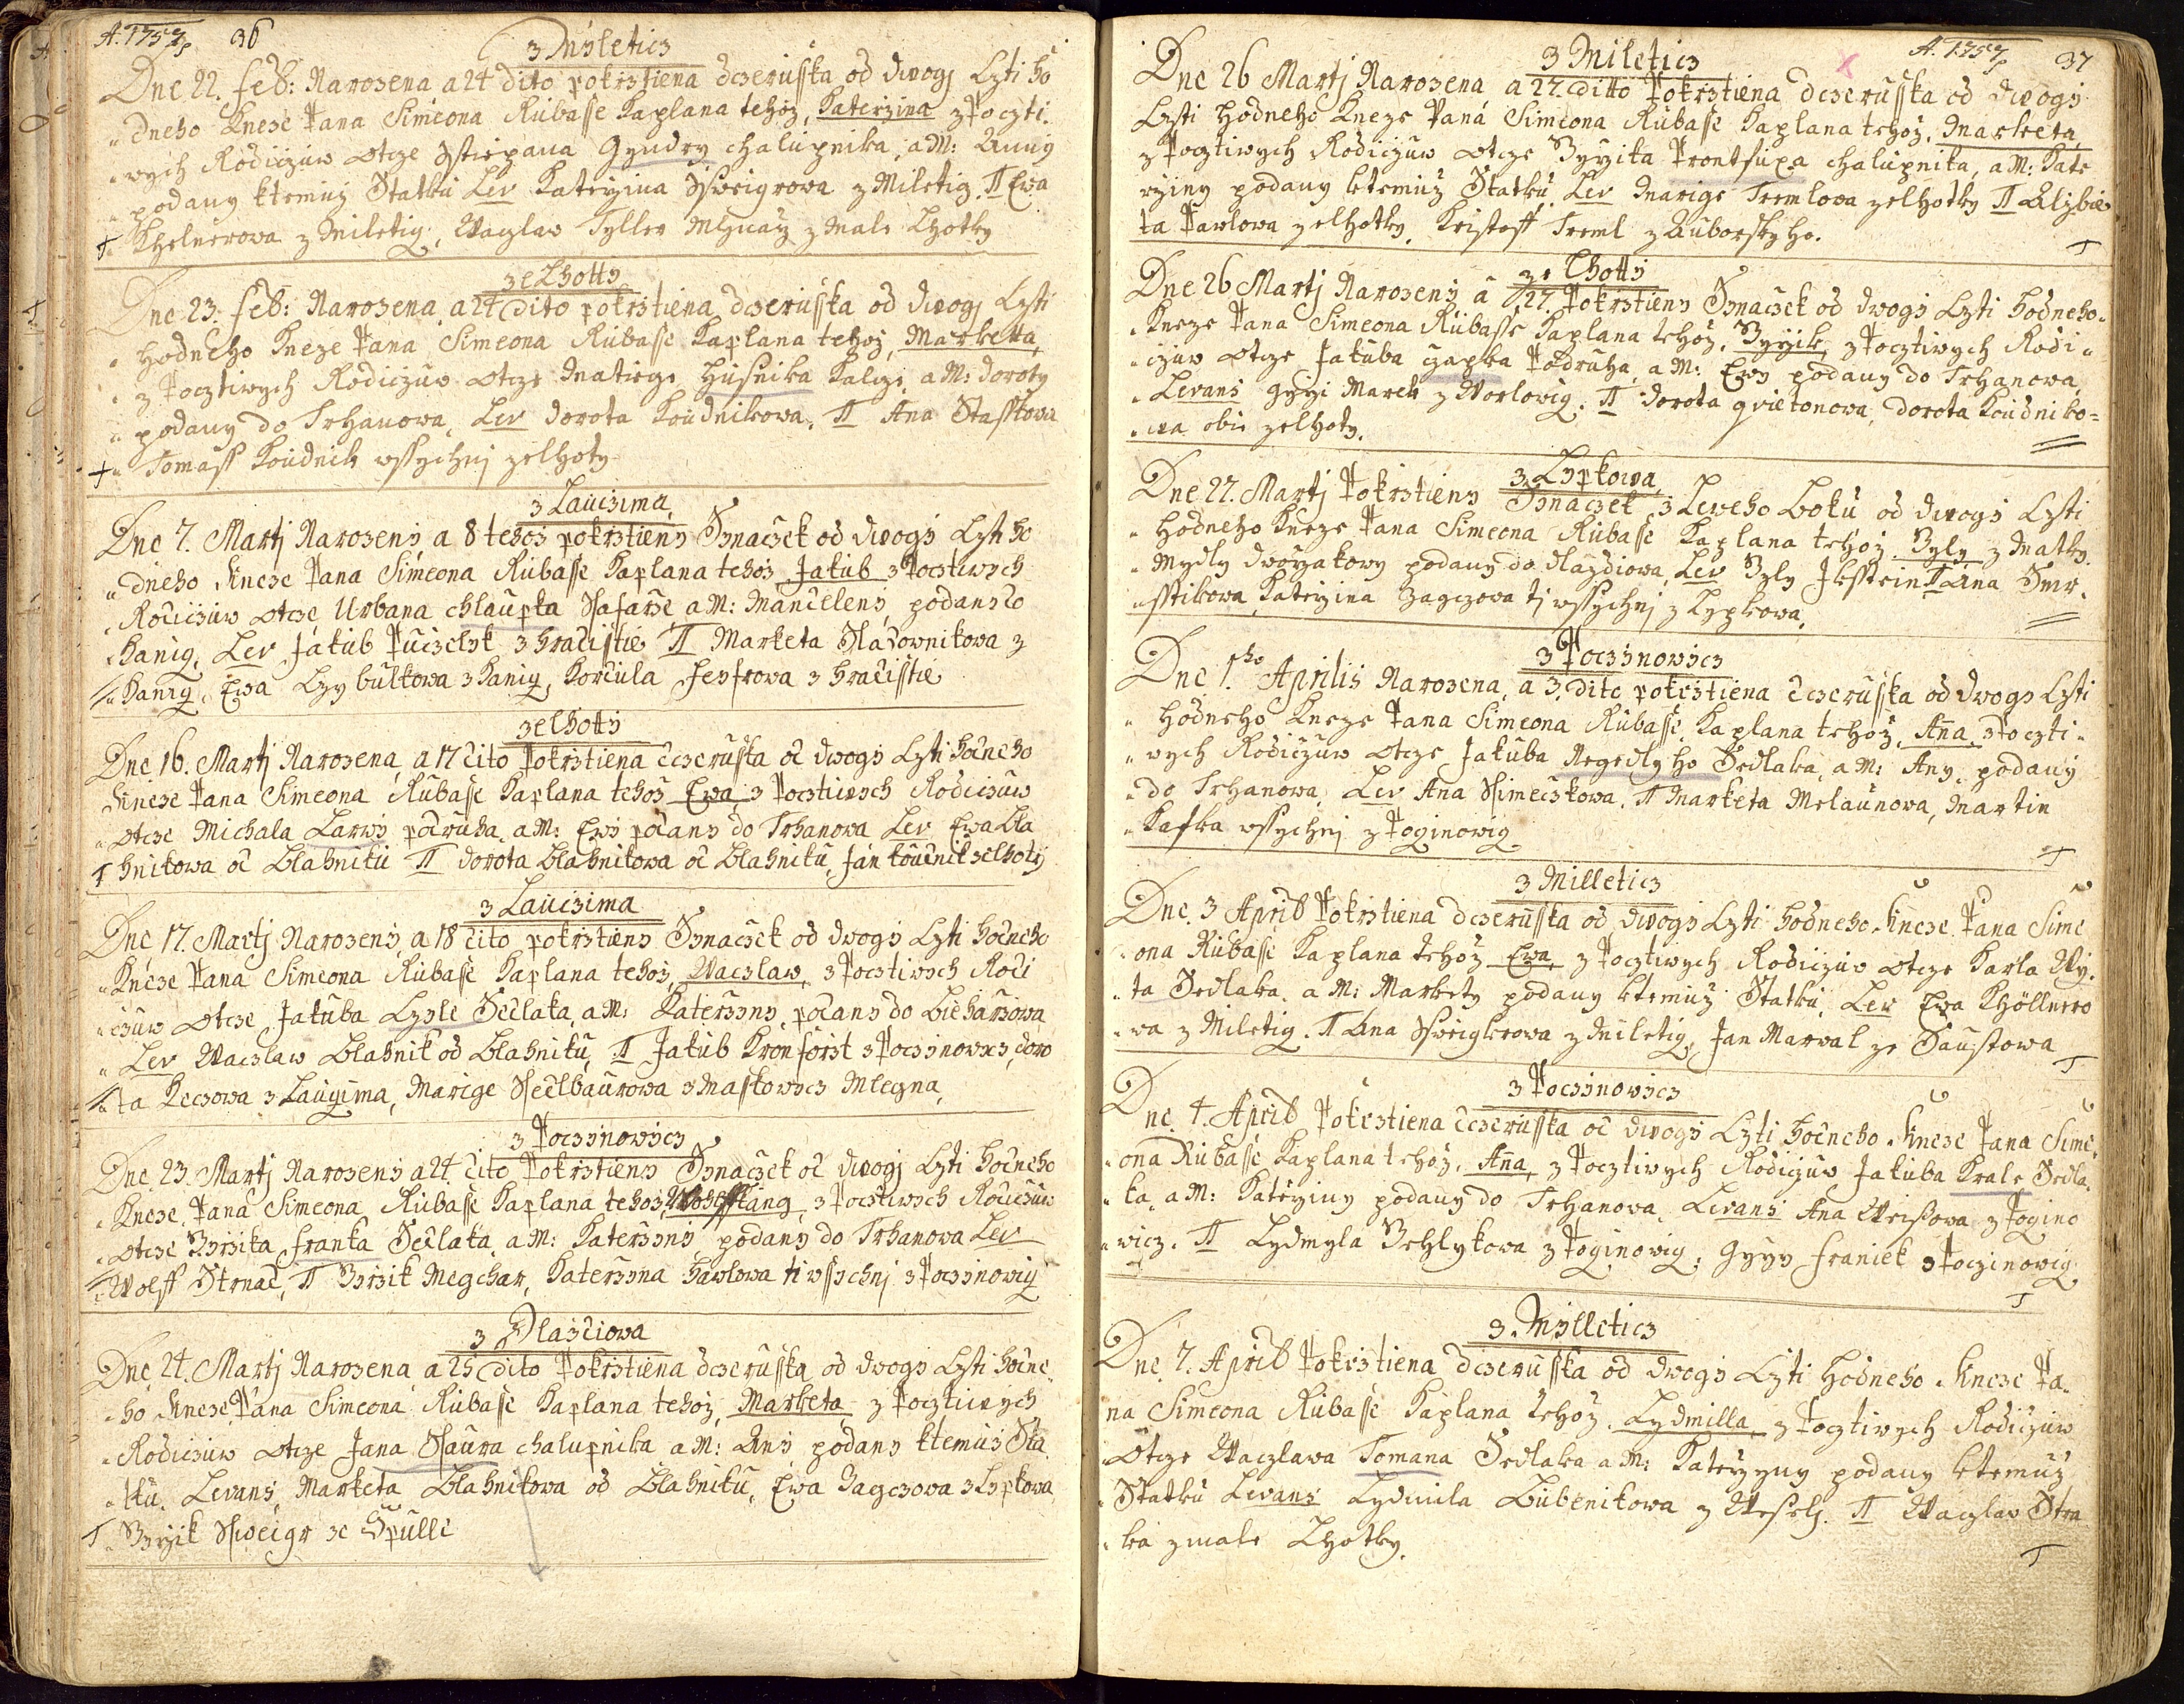 A. 1757 36
z Myleticz
Dne 22. Feb: Narozena a 24 dito pokrztiena dczeruska od dwogj Czti ho
dneho Kneze Pana Simeona Rubasse Kaplana tehoz, Katerzina z Poczti
wych Rodiczuw otcze Sstiepana Gyndry chalupnika, a M: Anny
podany ktemuz Statku Lev Kateryina Ssweigrowa z Miletig. TT Ewa
Khelnerowa z Miletig, Waczlaw Tyller Mlynarz z Male Lhotky
z elhotty
Dne 23. Feb: Narozena, a 24 dito pokrztiena dczeruska od dwogj Czti
hodneho Kneze Pana Simeona Rubasse Kaplana tehoz, Marketta,
z Pocztiwych Rodiczuw otcze Matiege Husnika Kalcze, a M: Doroty
podany do Trhanowa, Lev Dorota Koudnikowa, TT Ana Stasskowa
Tomass Koudnik wssychnj zelhoty
z Lauczima,
Dne 7. Martj Narozeny a 8 tehoz pokrztieny Synaczek od dwogy Czti ho
dneho Kneze Pana Simeona Rubasse Kaplana tehoz Jakub z Pocztiwych
Rodiczuw otcze Urbana chlaupka Ssafarze a M: Mandeleny, podany do
Kanig, Lev Jakub Puczelyk z Hradisstie TT Marketa Sladownikowa z
Kanig, Ewa Czybulkowa z Kanig, Kordula Fenfrowa z Hradisstie
z elhotty
Dne 16. Martj Narozena, a 17 dito Pokrztiena dczeruska od dwogy Czti hodneho
Kneze Pana Simeona Rubasse Kaplana tehoz Ewa z Pocztiwych Rodiczuw
otcze Michala Larwy podruha, a M: Ewy podany do Trhanowa Lev Ewa Bla
hnikowa od Blahniku TT Dorota Blahnikowa od Blahniku, Jan Koudnik zelhoty
z Lauczima
Dne 17. Martj Narozeny, a 18 dito pokrztieny Synaczek od dwogy Czti hodneho
Kneze Pana Simeona Rubasse Kaplana tehoz, Waczlaw, z Pocztiwych Rodi
czuw otcze Jakuba Cyzle Sedlaka, a M: Katerzyny, podany do Bieharzowa
Lev Waczlaw Blahnik od Blahniku, TT Jakub Kronforst z Poczinowicz, Doro
ta Reczowa z Lauczima, Marige Ssedlbaurowa z Maskowicz Mlegna,
z Poczinowicz
Dne 23. Martj Narozeny a 24. dito Pokrztieny Synaczek od dwogj Czti hodneho
Kneze Pana Simeona Rubasse Kaplana tehoz, Wolffgang, z Pocztiwych Rodiczuw
otcze Birzika Franka Sedlaka, a M: Katerzyny podany do Trhanowa Lev
Wolff Strnad, TT Birzik Megchar, Katerzyna Hawlowa ti wssychnj z Poczinowig
z Dlazdiowa
Dne 24. Martj Narozena a 25 dito Pokrztiena dczeruska od dwogy Czti hodne
ho Kneze Pana Simeona Rubasse Kaplana tehoz, Marketa, z Pocztiwych
Rodiczuw otcze Jana Ssaura chalupnika a M: Any podany ktemuz Sta
tku. Levans, Marketa Blahnikowa od Blahniku, Ewa Gagczowa z Lypkowa
Birzik Ssweigr ze Spulle
A. 1757 37
z Mileticz
Dne 26 Martj Narozena a 27. ditto Pokrztiena dczeruska od dwogy
Czti hodneho Kneze Pana Simeona Rubasse Kaplana tehoz, Marketa,
z Pocztiwych Rodiczuw otcze Birzika Prontsuxa chalupnika, a M: Kate
rziny podany ktemuz Statku, Lev Marige Tremlowa zelhotky TT Alzbie
ta Pawlowa zelhotky, Kristoff Treml z Auborskyho.
z Lhotty
Dne 26 Martj Narozeny a 27. Pokrztieny Synaczek od dwogy Czti hodneho
Kneze Pana Simeona Rubasse Kaplana tehoz. Birzik, z Pocztiwych Rodi
czuw otcze Jakuba czapka Podruha, a M: Ewy podany do Trhanowa,
Levans Gyrzi Marek z Worlowig. TT Dorota Qvietonowa, Dorota Koudniko=
wa obie zelhoty.
z Lypkowa,
Dne 27. Martj Pokrztieny Synaczek z Leweho Boku od dwogy Czti
hodneho Kneze Pana Simeona Rubasse Kaplana tehoz. Bily z Matky
Mydly dworzakowy podany do dlazdiowa, Lev Bily Jkstein TT Ana Smr.
sstikowa, Kateryina Gagczowa tj wssychnj z Lypkowa.
z Poczinowicz
Dne 1ho Aprilis Narozena, a 3. dito pokrztiena dczeruska od dwogy Czti
hodneho Kneze Pana Simeona Rubasse Kaplana tehoz, Aña, z Poczti
wych Rodiczuw otcze Jakuba Negedlyho Sedlaka, a M: Any, podany
do Trhanowa, Lev Ana Ssimeczkowa, TT Marketa Melaunowa, Martin
Kafka wssychnj z Poginowig
z Milleticz
Dne. 3 April Pokrztiena dczeruska od dwogy Czti hodneho Kneze Pana Sime
ona Rubasse Kaplana tehoz Ewa, z Pocztiwych Rodiczuw otcze Karla Wy.
ta Sedlaka, a M: Markety podany ktemuz Statku, Lev Ewa Khöllnero
wa z Miletig. TT Ana Ssweiglerowa z Miletig, Jan Marwal ze Saustowa
z Poczinowicz
Dne. 4. April Pokrztiena dczeruska od dwogy Czti hodneho Kneze Pana Sime
ona Rubasse Kaplana tehoz. Aña, z Pocztiwych Rodiczuw Jakuba Krale Sedla
ka, a M: Kateryiny podany do Trhanowa, Levans Ana Weissowa z Pogino
wicz. TT Lydmyla Behlykowa z Poginowig, Gyrzy Franiek z Poczinowig
z. Mylleticz
Dne. 7. April Pokrztiena dczeruska od dwogy Czti hodneho Kneze Pa.
na Simeona Rubasse Kaplana tehoz. Lydmilla, z Pocztiwych Rodiczuw
Otcze Waczlawa Tomana Sedlaka a M: Katerzyny podany ktemuz
Statku Levans Lydmila Bubenikowa z Weselj. TT Waczlaw Stra
ka z male Lhotky.